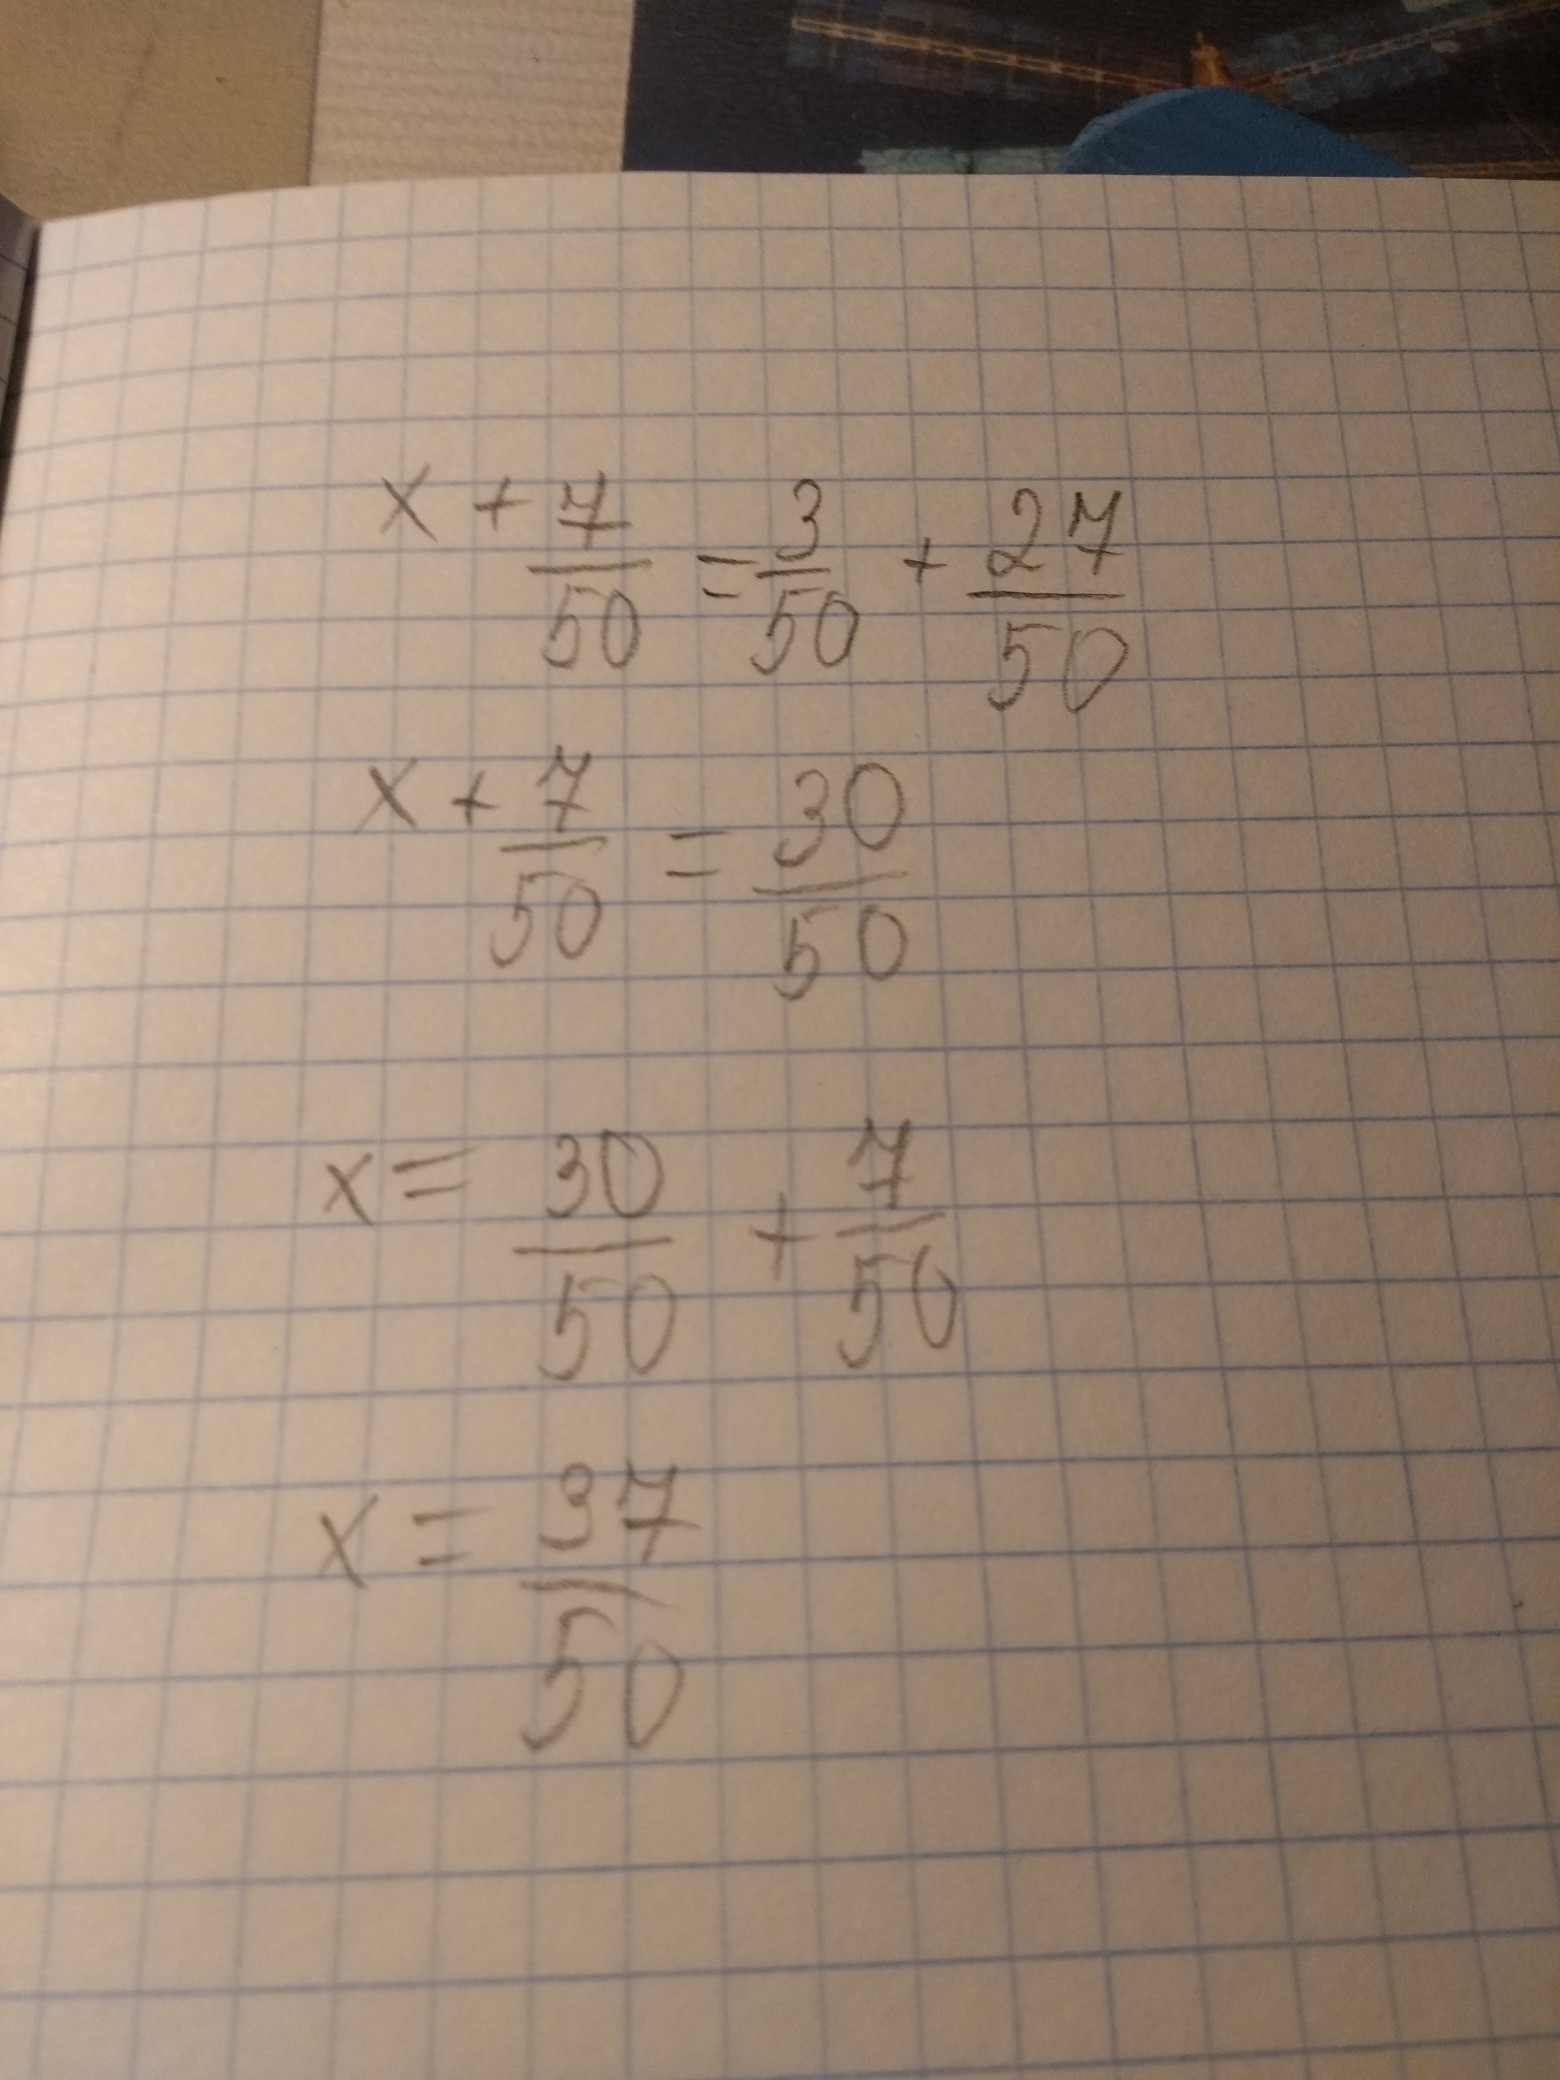 x + 7/50 = 3/50 + 27/50
x + 7/50 = 30/50
x = 30/50 + 7/50
x = 37/50